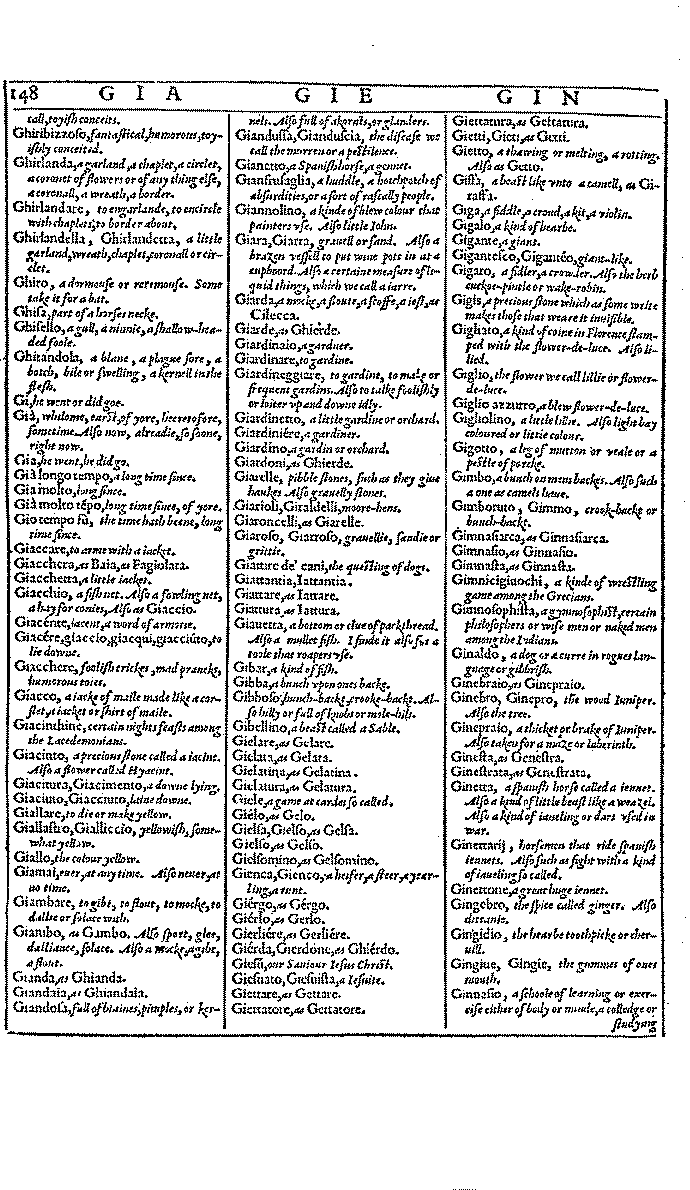 148 G I A G I E G I N
call, toyish conceits.
Ghiribizzoso, fantastical, humorous, toy-
ishly conceited.
Ghirlanda, a garland, a chaplet, a circlet,
a coronet of flowers or of any thing else,
a coronall, a wreath, a border.
Ghirlandare, to engarlande, to encircle
with chaplets, to border about.
Ghirlandella, Ghirlandetta, a little
garland, wreath, chaplet, coronall or cir-
clet.
Ghiro, a dormouse or reremouse. Some
take it for a bat.
Ghisa, part of a horses necke.
Ghisello, a gull, a ninnie, a shallow-hea-
ded foole.
Ghitandola, a blane, a plague sore, a
botch, bile or swelling, a kernell in the
flesh.
Gi, he went or did goe.
Già, whilome, earst, of yore, heeretofore,
sometime. Also now, alreadie, so soone,
right now.
Gia, he went, he did go.
Già longo tempo, a long time since.
Gia molto, long since.
Già molto tẽpo, long time since, of yore.
Gio tempo fù, the time hath beene, long
time since.
Giaccare, to arme with a iacket.
Giacchera, as Baia, as Fagiolara.
Giacchetta, a little iacket.
Giacchio, a fish net. Also a fowling net,
a hay for conies, Also as Giaccio.
Giacénte, iacent, a word of armorie.
Giacére, giaccio, giacqui, giacciúto, to
lie downe.
Giacchere, foolish trickes, mad pranckes,
humorous toies.
Giacco, a iacke of maile made like a cor-
slet, a iacket or shirt of maile.
Giacinthine, certain nights feasts among
the Lacedemonians.
Giacinto, a precious stone called a iacint.
Also a flower called Hyacint.
Giacitura, Giacimento, a downe lying.
Giaciuto, Giacciuto, laine downe.
Giallare, to die or make yellow.
Giallastro, Gialliccio, yellowish, some-
what yellow.
Giallo, the colour yellow.
Giamai, euer, at any time. Also neuer, at
no time.
Giambare, to gibe, to flout, to mocke, to
dallie or solace with.
Giambo, as Gambo. Also sport, glee,
dalliance, solace. Also a mocke, a gibe,
a flout.
Gianda, as Ghianda.
Giandaia, as Ghiandaia.
Giandosa, full of blaines, pimples, or ker-
nels. Also full of akornes, or glanders.
Giandussa, Gianduscia, the disease we
call the murren or a pestilence.
Gianetto, a Spanish horse, a gennet.
Gianfrusaglia, a huddle, a hotchpotch of
absurdities, or a sort of rascally people.
Giannolino, a kinde of blew colour that
painters vse. Also little Iohn.
Giara, Giarra, grauell or sand. Also a
brazen vessell to put wine pots in at a
cupboord. Also a certaine measure of li-
quid things, which we call a iarre.
Giarda, a mocke, a floute, a scoffe, a iest, as
Cilecca.
Giarde, as Ghiérde.
Giardinaio, a gardner.
Giardinare, to gardine.
Giardineggiare, to gardine, to make or
frequent gardins. Also to talke foolishly
or loiter vp and downe idly.
Giardinetto, a little gardine or orchard.
Giardiniére, a gardiner.
Giardino, a gardin or orchard.
Giardoni, as Ghierde.
Giarelle, pibble stones, such as they giue
haukes. Also grauelly stones.
Giarioli, Giraldelli, moore-hens.
Giaroncelli, as Giarelle.
Giaroso, Giarroso, grauellie, sandie or
grittie.
Giattire de' cani, the quesling of dogs.
Giattantia, Iattantia.
Giattare, as Iattare.
Giattura, as Iattura.
Giauetta, a bottom or clue of packthread.
Also a mullet fish. I finde it also for a
toole that roapers vse.
Gibar, a kind of fish.
Gibba, a bunch vpon ones backe.
Gibboso, bunch-backt, crooke-backt. Al-
so hilly or full of knobs or mole-hils.
Gibellino, a beast called a Sable.
Gielare, as Gelare.
Gielata, as Gelata.
Gielatina, as Gelatina.
Gielatura, as Gelatura.
Giele, a game at cardes so called.
Giélo, as Gelo.
Gielsa, Gielso, as Gelsa.
Gielso, as Gelso.
Gielsomino, as Gelsomino.
Gienca, Gienco, a heifer, a steer, a year-
ling, a runt.
Giérgo, as Gérgo.
Giérlo, as Gerlo.
Gierliére, as Gerliére.
Giérda, Gierdone, as Ghiérdo.
Giesù, our Sauiour Iesus Christ.
Giesuato, Giesuista, a Iesuite.
Giettare, as Gettare.
Giettatore, as Gettatore.
Giettatura, as Gettatura.
Gietti, Gieti, as Getti.
Gietto, a thawing or melting, a rotting.
Also as Getto.
Giffa, a beast like vnto a camell, as Gi-
raffa.
Giga, a fiddle, a croud, a kit, a violin.
Gigalo, a kind of hearbe.
Gigante, a giant.
Gigantesco, Gigantéo, giant-like.
Gigaro, a fidler, a crowder. Also the herb
cuckce-pintle or wake-robin.
Gigis, a precious stone which as some write
makes those that weare it inuisible.
Gigliato, a kind of coine in Florence stam-
ped with the flower-de-luce. Also li-
lied.
Giglio, the flower we call lillie or flower-
de-luce.
Giglio azzurro, a blew flower-de-luce.
Gigliolino, a little lillie. Also light bay
coloured or lillie colour.
Gigotto, a leg of mutton or veale or a
pestle of porke.
Gimbo, a bunch on mens backes. Also such
a one as camels haue.
Gimboruto, Gimmo, crook-backe or
bunch-backt.
Gimnasiarco, as Ginnasiarca.
Gimnasio, as Ginnasio.
Gimnasta, as Ginnasta.
Gimnicigiuochi, a kinde of wrestling
game among the Grecians.
Gimnosophista, a gymnosophist, certain
philosophers or wise men or naked men
among the Indians.
Ginaldo, a dog or a curre in rogues lan-
guage or gibbrish.
Ginebraio, as Ginepraio.
Ginebro, Ginepro, the wood Iuniper.
Also the tree.
Ginepraio, a thicket or brake of Iuniper.
Also taken for a maze or laberinth.
Ginestra, as Genestra.
Ginestrata, as Genestrata.
Ginetta, a spanish horse called a iennet.
Also a kind of little beast like a weazel.
Also a kind of iaueling or dart vsed in
war.
Ginettarij, horsemen that ride spanish
iennets. Also such as fight with a kind
of iaueling so called.
Ginettone, a great huge iennet.
Gingebro, the spice called ginger. Also
dittanie.
Gingidio, the hearbe toothpicke or cher-
uill.
Gingiue, Gingie, the gummes of ones
mouth.
Ginnasio, a schoole of learning or exer-
cise either of body or minde, a colledge or
studying